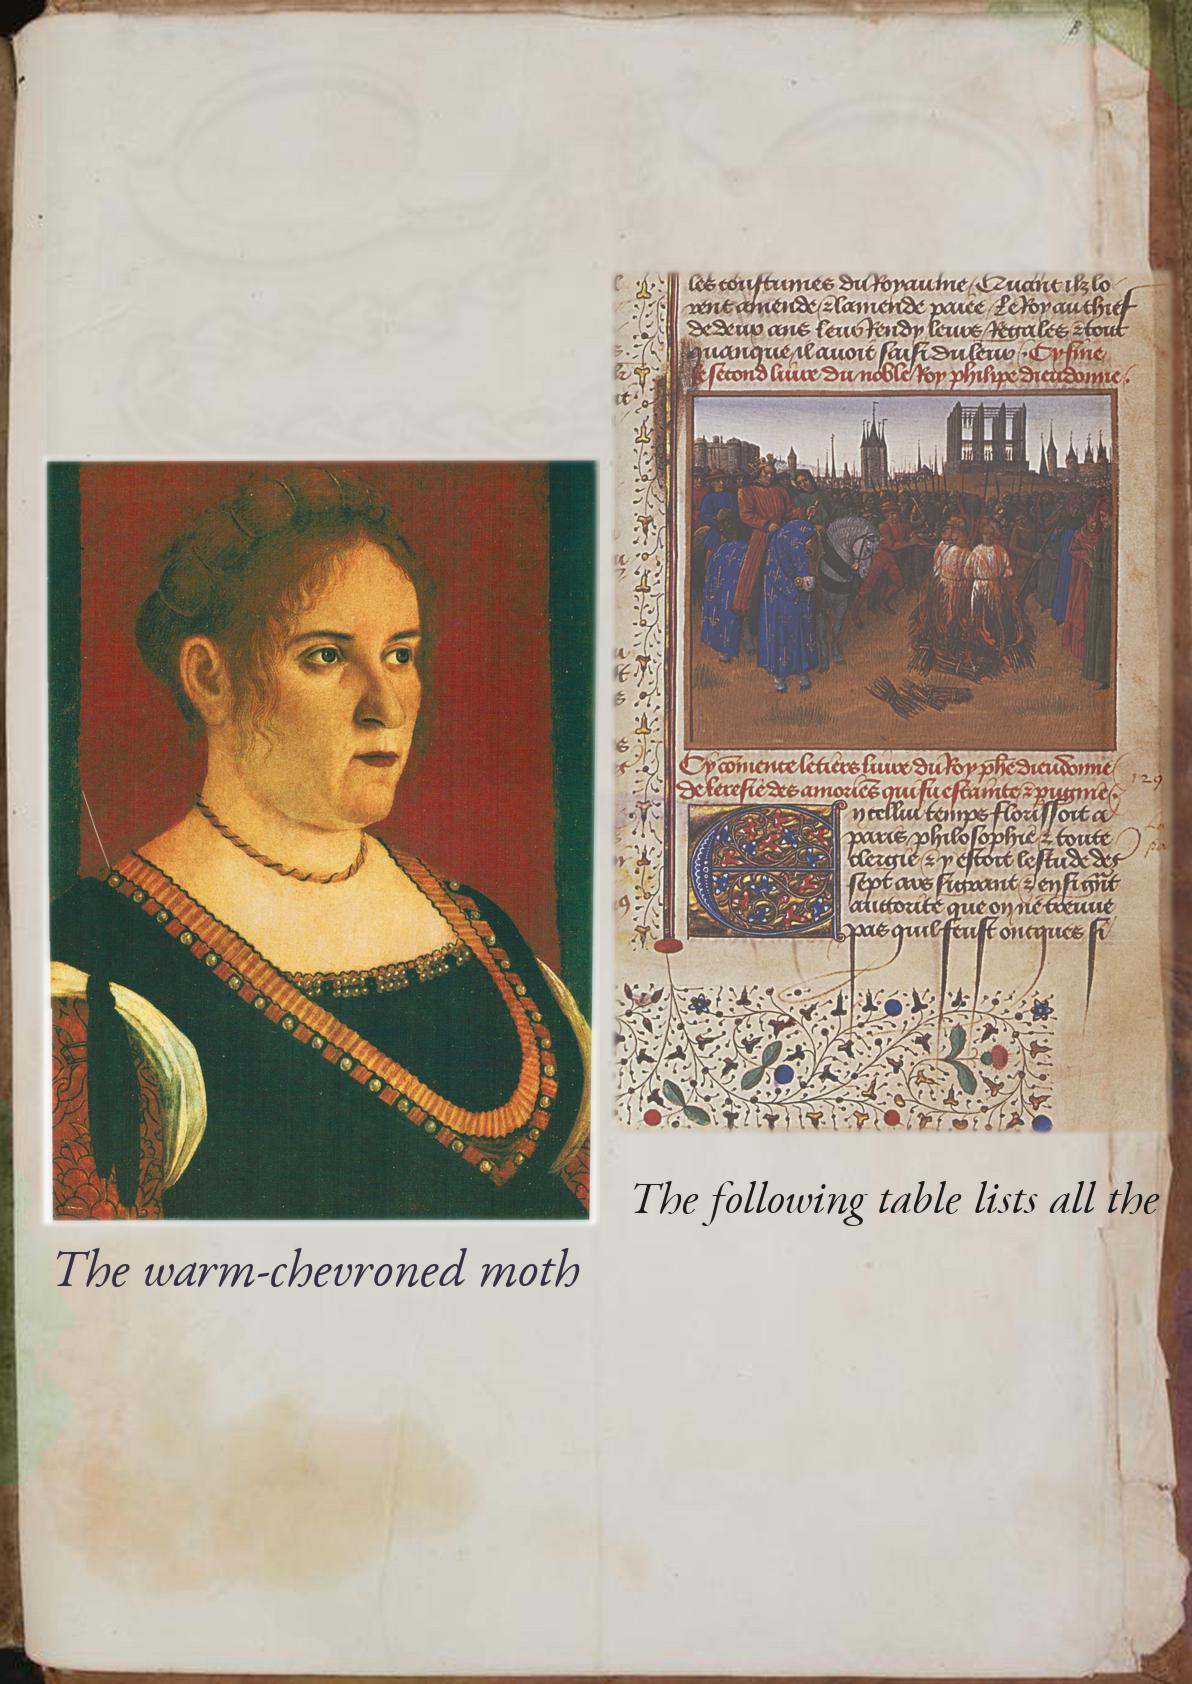 B
The warm-chevroned moth
les coustumes du Royaume / Quant ilz lo
rent amende / lamende paiee / Le Roy au chief
de deux ans leur Rendy leurs Regales & tout
quanque il auoit saisi du leur · Cy fine
le second liure du noble Roy philipe dieudonne.
Cy comence le tiers liure du Roy phe dieudonne
de leresie des amoriens qui fu estainte & pugnie.
129
En cellui temps florissoit a
paris philosophie & toute
clergie & y estoit lestude des
sept ars si grant & en si grant
auctorite que on ne treuue
pas quil feust oncques si
The following table lists all the